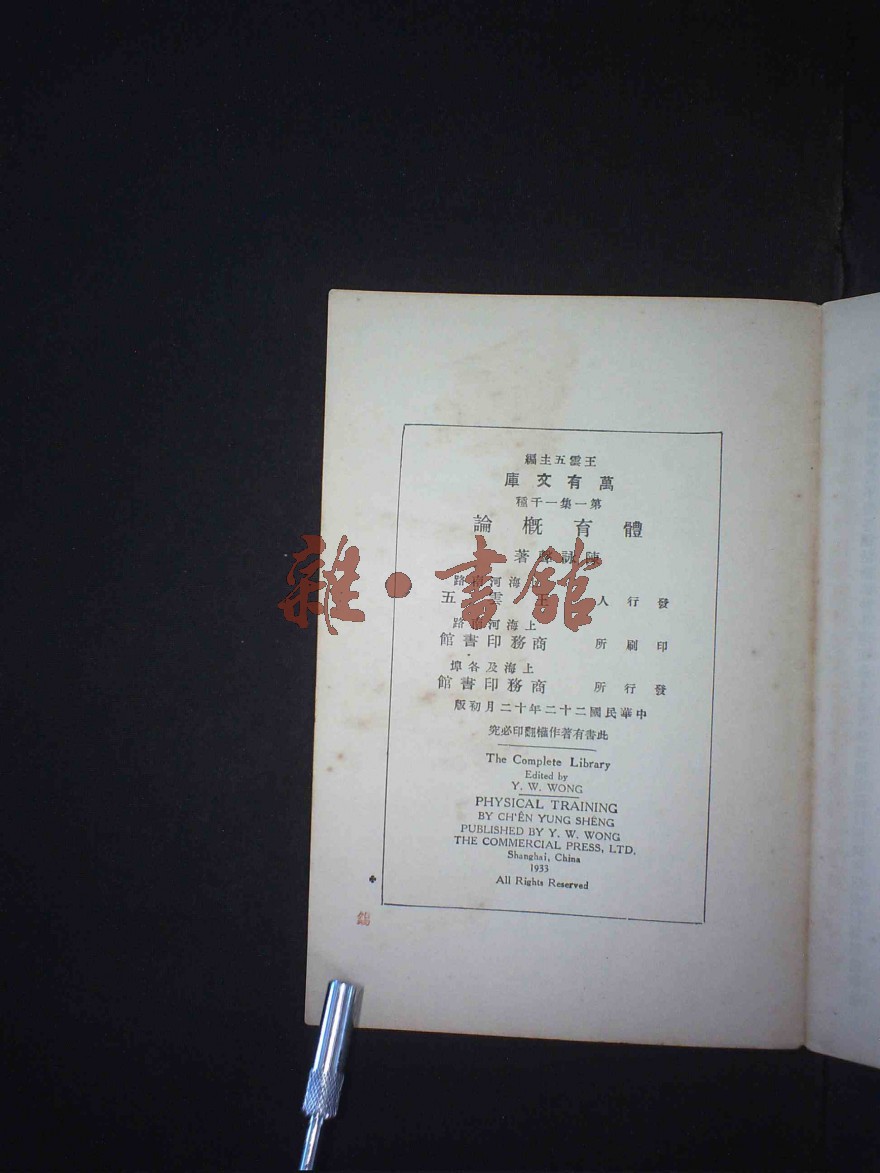 王雲五主編
萬有文庫
第一集一千種
體育概論
陳詠聲著
上海河南路
發行人 王雲五
上海河南路
印刷所 商務印書館
上海及各埠
發行所 商務印書館
中華民國二十二年十二月初版
此書有著作權翻印必究
The Complete Library
Edited by
Y. W. WONG
PHYSICAL TRAINING
BY CH'ÊN YUNG SHÊNG
PUBLISHED BY Y. W. WONG
THE COMMERCIAL PRESS, LTD.
Shanghai, China
1933
All Rights Reserved
雜·書館